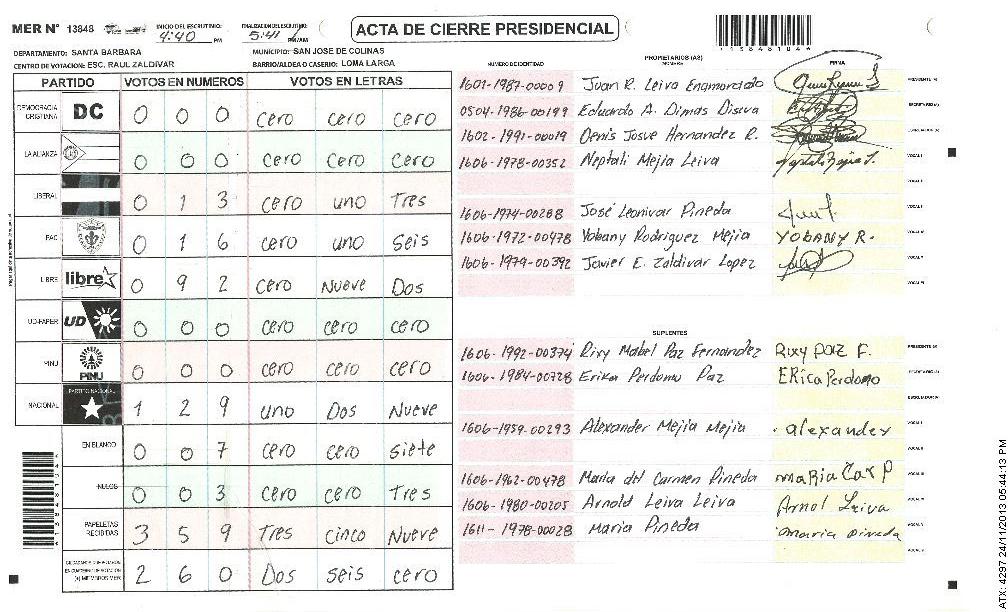 MER N° 13848 INICIO DEL ESCRUTINIO: 4:40 PM FINALIZACION ESCRUTINIO: 5:41 PM/AM ACTA DE CIERRE PRESIDENCIAL
DEPARTAMENTO: SANTA BARBARA MUNICIPIO: SAN JOSE DE COLINAS
CENTRO DE VOTACION: ESC. RAUL ZALDIVAR BARRIO/ALDEA O CASERIO: LOMA LARGA
PARTIDO VOTOS EN NUMEROS VOTOS EN LETRAS
DEMOCRACIA CRISTIANA DC 0 0 0 cero cero cero
LA ALIANZA 0 0 0 cero Cero Cero
LIBERAL 0 1 3 cero uno Tres
PAC 0 1 6 cero uno Seis
LIBRE libre 0 9 2 Cero Nueve Dos
UD-FAPER UD 0 0 0 cero cero cero
PINU PINU 0 0 0 cero cero cero
NACIONAL PARTIDO NACIONAL 1 2 9 uno Dos Nueve
EN BLANCO 0 0 7 cero cero siete
NULOS 0 0 3 cero cero Tres
PAPELETAS RECIBIDAS 3 5 9 Tres cinco Nueve
2 6 0 Dos seis cero
NUMERO DE IDENTIDAD PROPIETARIOS (AS) NOMBRE FIRMA
1601-1987-00009 Juan R. Leiva Enamorado
0504-1986-00199 Eduardo A. Dimas Discua
1602-1991-00019 Denis Josue Hernandez R.
1606-1978-00352 Neptali Mejia Leiva
1606-1974-00288 José Leonivar Pineda
1606-1972-00478 Yobany Rodriguez Mejia YOBANY R.
1606-1979-00392 Javier E. Zaldivar Lopez
SUPLENTES
1606-1992-00374 Rixy Mabel Paz Fernandez Rixy PAZ F.
1606-1984-00728 Erika Perdomo Paz ERica Perdomo
1606-1959-00293 Alexander Mejia Mejia alexander
1606-1962-00478 Maria del Carmen Pineda maRia Car P
1606-1980-00205 Arnold Leiva Leiva Arnol Leiva
1611-1978-00028 Maria Pineda maria pineda
ATX: 4297 24/11/2013 05:44:13 PM